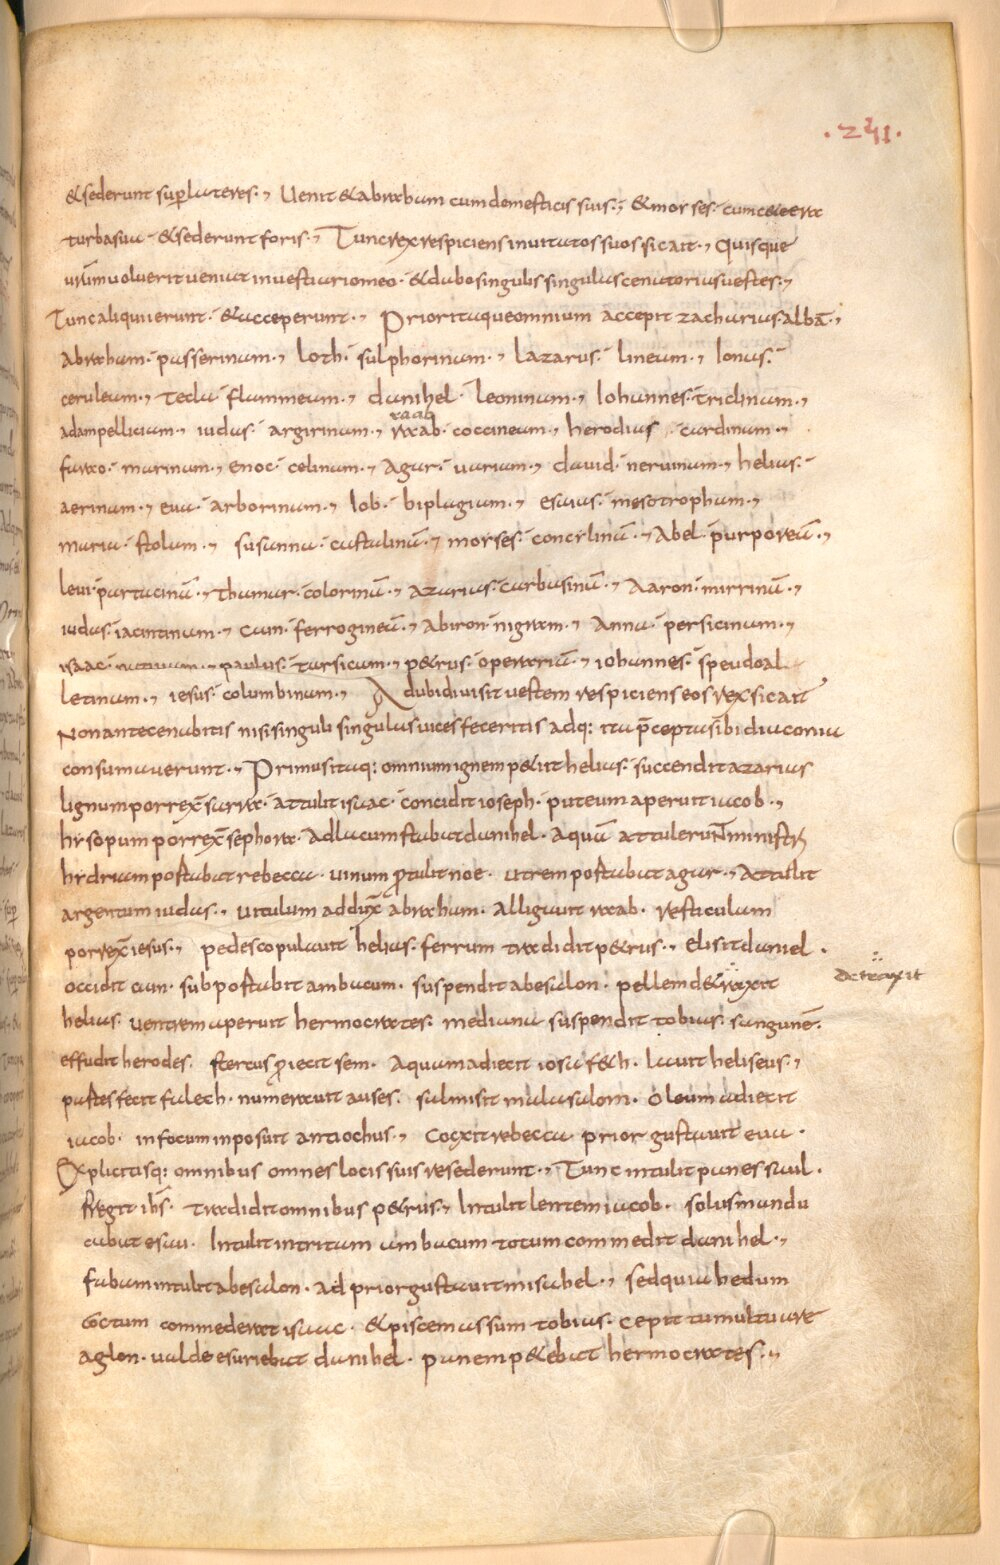 .241.
&sederunt sup lateres., Uenit &abraham cum domesticis suis., &morses. cumcetera
turbasua. &sederunt foris., Tuncrex respiciens inuitatos suos sic ait., Quisque
urm uoluerit ueniat inuestiariomeo. &dabo singulis singulas cenatorias uestes.,
Tunc aliqui ierunt. &acceperunt., Prior itaque omnium accepit zacharias. albā.,
abraham. passerinum., loth. sulphorinum., lazarus. lineum., Ionas.
ceruleum., Tecla. flammeum., danihel. leoninum., Iohannes. triclinum.,
adam pellicium., iudas. argirinum., raab
raab. coccineum., herodias. cardinum.,
farao. marinum., enoc. celinum., Agar. uarium., dauid. neruinum., helias.
aerinum., eua. arborinum., Iob. biplagium., esaias. mesotrophum.,
maria. stolam., susanna. castalinū., morses. concrlinū., Abel. purporeū.,
leui. partacinū., thamar. colorinū., azarias. carbasinū., Aaron. mirrinū.,
iudas. iacintinum., cain. ferrogineū., Abiron. nigram., Anna. persicinum.,
isaac. natiuum., paulus. tarsicum., p&rus. operarium., iohannes. speudoal
letinum., iesus. columbinum., Adubi diuisit uestem respiciens eos rex sic ait
Non ante cenabitis nisi singuli singulas uices feceritis adq: ita pceptasibi diaconia
consumauerunt., Primus itaq: omnium ignem p&iit helias. succendit azarias
lignum porrex sarra. attulit isaac. concidit ioseph. puteum aperuit iacob.,
hysopum porrex sephora. Ad lacum stabat danihel. Aquā attulerunt ministri
hydriam postabat rebecca. uinum ptulit noe. utrem postabat agar., Attulit
argentum iudas., uitulum addux abraham. Alligauit raab. resticulam
porrex iesus., pedes copulauit helias. ferrum tradidit p&rus., Elisit daniel.
occidit cain. subpostabit ambacum. suspendit abesalon. pellem d&raxit
detraxit
helias. uentrem aperuit hermocrates. mediana suspendit tobias. sanguinē.
effudit herodes. stercus piecit sem. Aquam adiecit iosaf&h. lauit heliseus.,
pastes fecit falech. numerauit auses. salmisit malasalom. oleum adiecit
iacob. in focum inposuit antiochus., Coxit rebecca prior gustauit eua.
Explicitisq: omnibus omnes locis suis resederunt., Tunc intulit panes saul.
fregit ihs. Tradidit omnibus p&rus., Intulit lentem iacob. solus manda
cabat esau. Intulit intritam ambacum totum commedit danihel.,
fabam intulit abesalon. ad prior gustauit misahel., sed quia hedum
coctum commederat isaac. &piscem assum tobias. cepit tumultuare
aglon. ualde esuriebat danihel. panem p&ebat hermocrates.,